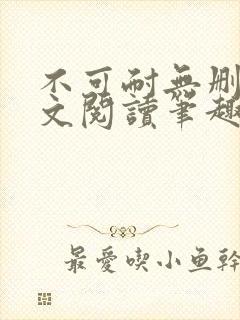 不可耐無刪
文閱讀筆趣
最愛喫小魚幹